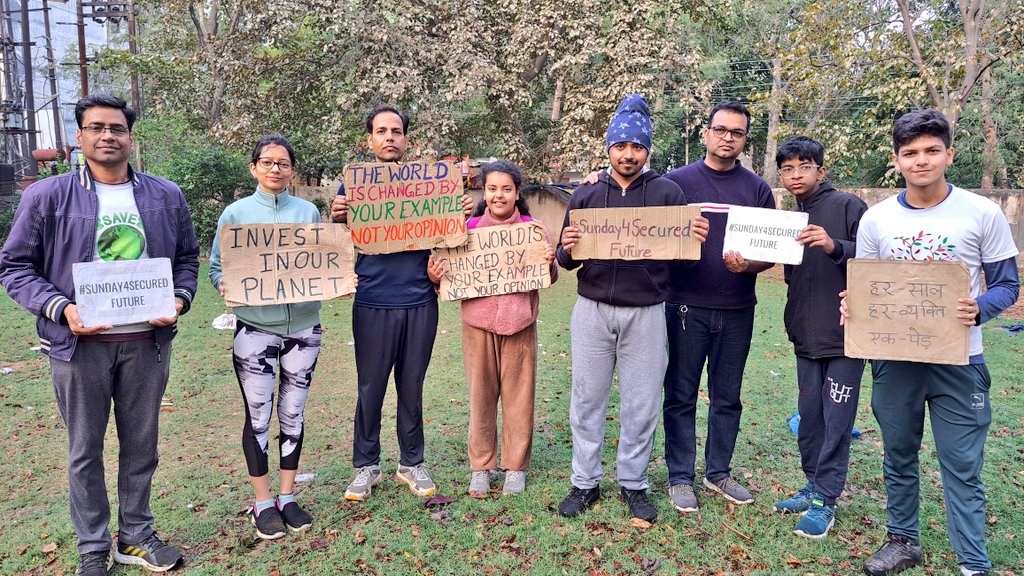 SAVE
#SUNDAY4SECURED
FUTURE
INVEST
IN OUR
PLANET
THE WORLD
IS CHANGED BY
YOUR EXAMPLE
NOT YOUR OPINION
THE WORLD IS
CHANGED BY
YOUR EXAMPLE
NOT YOUR OPINION
#Sunday4Secured
Future
#SUNDAY4SECURED
FUTURE
हर-साल
हर-व्यक्ति
एक-पेड़